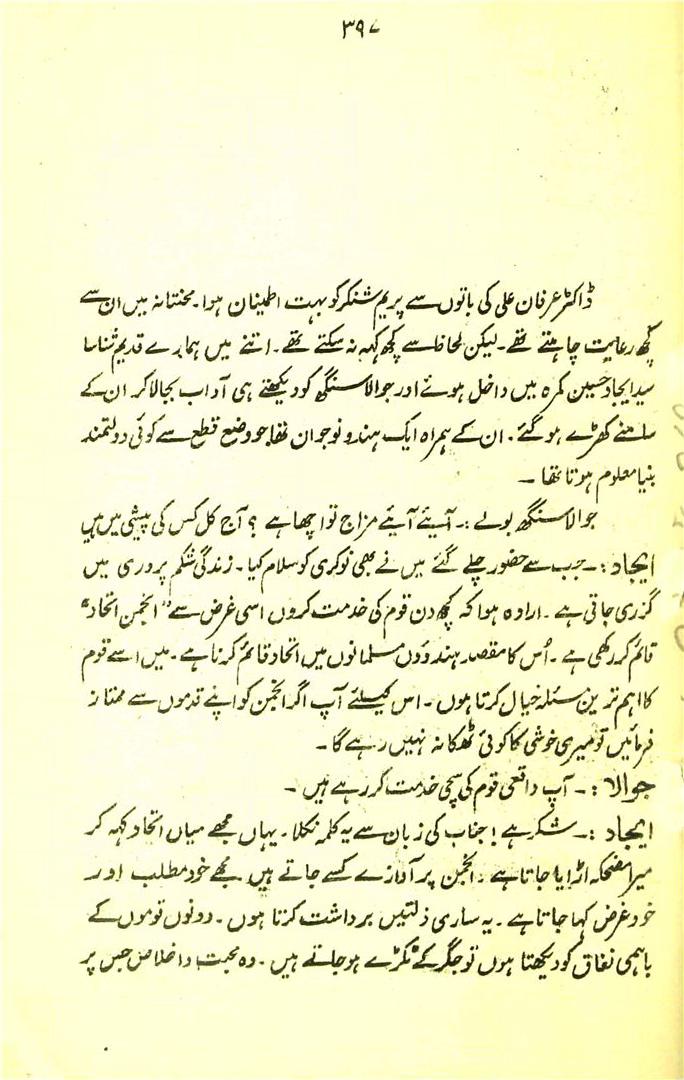 ۳۹۷
ڈاکٹر عرفان علی کی باتوں سے پریم شنکر کو بہت اطمینان ہوا۔ محنتانہ میں ان سے
کچھ رعایت چاہتے تھے۔ لیکن لحاظ سے کچھ کہہ نہ سکتے تھے۔ اتنے میں ہمارے قدیم شناسا
سید ایجاد حسین کمرہ میں داخل ہوئے اور جوالا سنگھ کو دیکھتے ہی آداب بجا لا کر ان کے
سامنے کھڑے ہو گئے۔ ان کے ہمراہ ایک ہندو نوجوان تھا جو وضع قطع سے کوئی دولتمند
بنیا معلوم ہوتا تھا ۔
جوالا سنگھ بولے :۔ آیئے آیئے مزاج تو اچھا ہے ؟ آج کل کس کی پیشی میں ہیں
ایجاد :۔ جب سے حضور چلے گئے میں نے بھی نوکری کو سلام کیا ۔ زندگی شکم پروری میں
گزری جاتی ہے ۔ ارادہ ہوا کہ کچھ دن قوم کی خدمت کروں اسی غرض سے "انجمن اتحاد"
قائم کر رکھی ہے ۔ اُس کا مقصد ہندوؤں مسلمانوں میں اتحاد قائم کرنا ہے ۔ میں اسے قوم
کا اہم ترین مسئلہ خیال کرتا ہوں ۔ اس کیلئے آپ اگر انجمن کو اپنے قدموں سے ممتاز
فرمائیں تو میری خوشی کا کوئی ٹھکانہ نہیں رہے گا ۔
جوالا :۔ آپ واقعی قوم کی سچی خدمت کر رہے ہیں ۔
ایجاد :۔ شکر ہے ! جناب کی زبان سے یہ کلمہ نکلا ۔ یہاں مجھے میاں اتحاد کہہ کر
میرا مضحکہ اڑایا جاتا ہے ۔ انجمن پر آوازے کسے جاتے ہیں مجھے خود مطلب اور
خود غرض کہا جاتا ہے ۔ یہ ساری ذلتیں برداشت کرتا ہوں ۔ دونوں قوموں کے
باہمی نفاق کو دیکھتا ہوں تو جگر کے ٹکڑے ہو جاتے ہیں ۔ وہ محبت و اخلاص جس پر